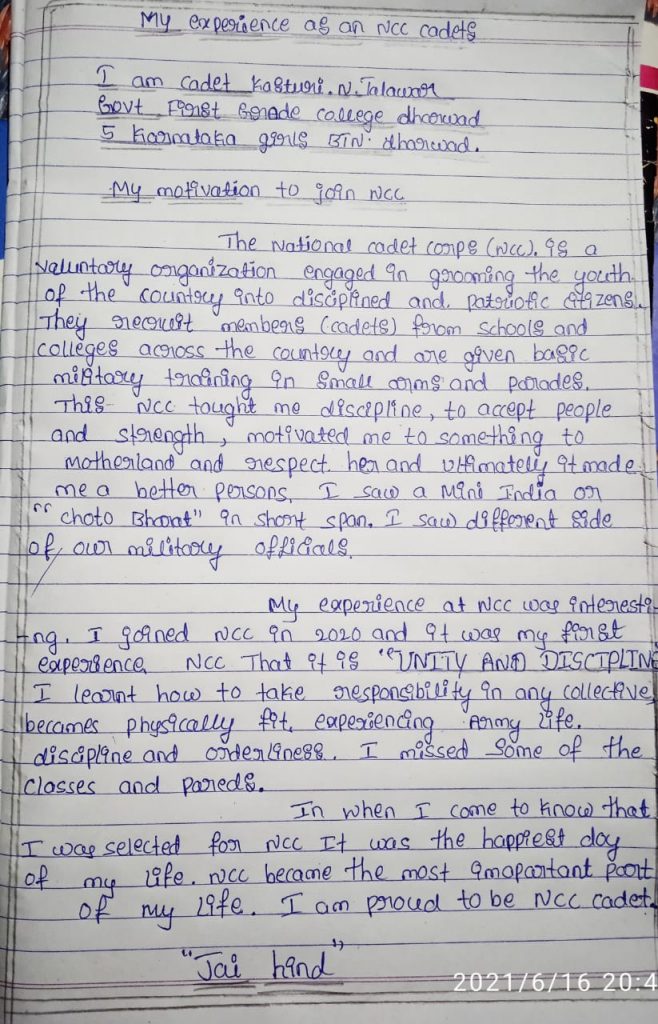 My experience as an NCC cadets
I am cadet Kasturi.N.Talawar
Govt First Gerade college dharwad
5 Karnataka girls BTN. dharwad.
My motivation to join NCC
The National cadet corps (NCC). is a
valuntary organization engaged in grooming the youth
of the country into disciplined and. patriotic citizens.
They recruit members (cadets) from schools and
colleges across the country and are given basic
military training in small arms and parades.
This NCC tought me discipline, to accept people
and strength, motivated me to something to
motherland and respect her and ultimately it made
me a better persons. I saw a Mini India or
"choto Bharat" in short span. I saw different side
of our military officials.
My experience at NCC was interesti-
-ng. I joined NCC in 2020 and it was my first
experience NCC That it is "UNITY AND DISCIPLINE
I learnt how to take responsibility in any collective,
becames physically fit. experiencing Army life.
discipline and orderliness. I missed some of the
classes and pareds.
In when I come to know that
I was selected for NCC It was the happiest day
of my life. NCC became the most imapartant part
of my life. I am proud to be NCC cadet.
"Jai hind"
2021/6/16 20:4